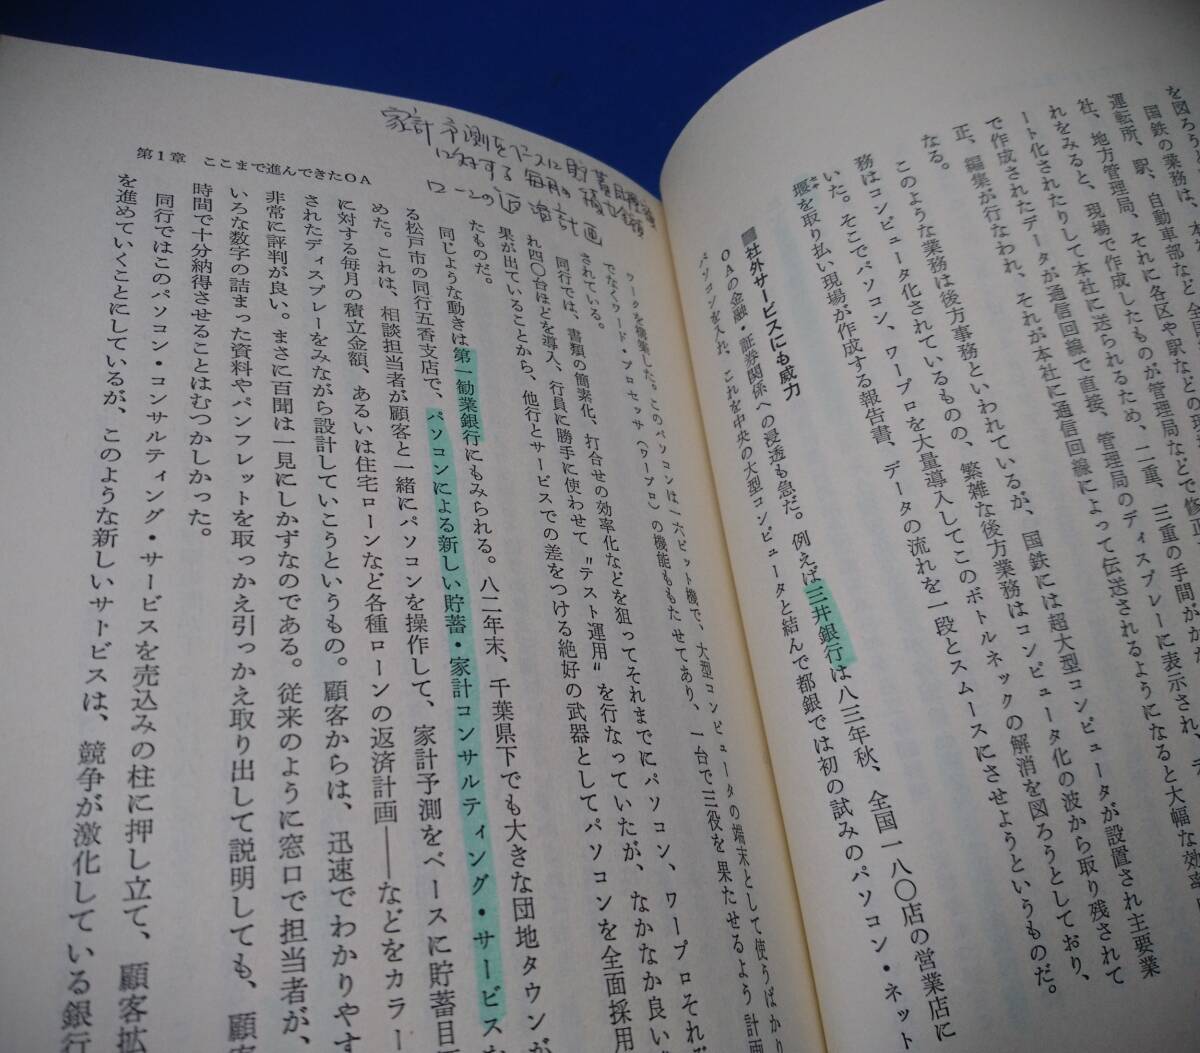 を図ろうと
国鉄の業務は、本
運転所、駅、自動車部など全
社、地方管理局、それに各区や駅などの現
れをみると、現場で作成したものが管理局などで修正
ート化されたりして本社に送られるため、二重、三重の手間がかか
で作成されたデータが通信回線で直接、管理局のディスプレーに表示され、デ
正、編集が行なわれ、それが本社に通信回線によって伝送されるようになると大幅な効率
なる。
このような業務は後方事務といわれているが、国鉄には超大型コンピュータが設置され主要業
務はコンピュータ化されているものの、繁雑な後方業務はコンピュータ化の波から取り残されて
いた。そこでパソコン、ワープロを大量導入してこのボトルネックの解消を図ろうとしており、
堰を取り払い現場が作成する報告書、データの流れを一段とスムースにさせようというものだ。
■社外サービスにも威力
OAの金融・証券関係への浸透も急だ。例えば三井銀行は八三年秋、全国一八〇店の営業店に
パソコンを入れ、これを中央の大型コンピュータと結んで都銀では初の試みのパソコン・ネット
家計予測をベースに貯蓄目標額
に対する毎月の積立額
ローンの返済計画
第1章 ここまで進んできたOA
ワークを構築した。このパソコンは一六ビット機で、大型コンピュータの端末として使うばかり
でなくワード・プロセッサ(ワープロ)の機能ももたせてあり、一台で三役を果たせるよう計画
されている。
同行では、書類の簡素化、打合せの効率化などを狙ってそれまでにパソコン、ワープロそれ
れ四〇台ほどを導入、行員に勝手に使わせて〝テスト運用〟を行なっていたが、なかなか良い
果が出ていることから、他行とサービスでの差をつける絶好の武器としてパソコンを全面採用
たものだ。
同じような動きは第一勧業銀行にもみられる。八二年末、千葉県下でも大きな団地タウンが
る松戸市の同行五香支店で、パソコンによる新しい貯蓄・家計コンサルティング・サービスを
めた。これは、相談担当者が顧客と一緒にパソコンを操作して、家計予測をベースに貯蓄目
に対する毎月の積立金額、あるいは住宅ローンなど各種ローンの返済計画――などをカラー
されたディスプレーをみながら設計していこうというもの。顧客からは、迅速でわかりやす
非常に評判が良い。まさに百聞は一見にしかずなのである。従来のように窓口で担当者が、
いろな数字の詰まった資料やパンフレットを取っかえ引っかえ取り出して説明しても、顧
時間で十分納得させることはむつかしかった。
同行ではこのパソコン・コンサルティング・サービスを売込みの柱に押し立て、顧客拡
を進めていくことにしているが、このような新しいサトビスは、競争が激化している銀行